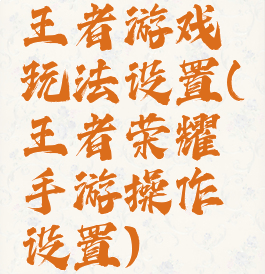 王者游戏
玩法设置(
王者荣耀
手游操作
设置)